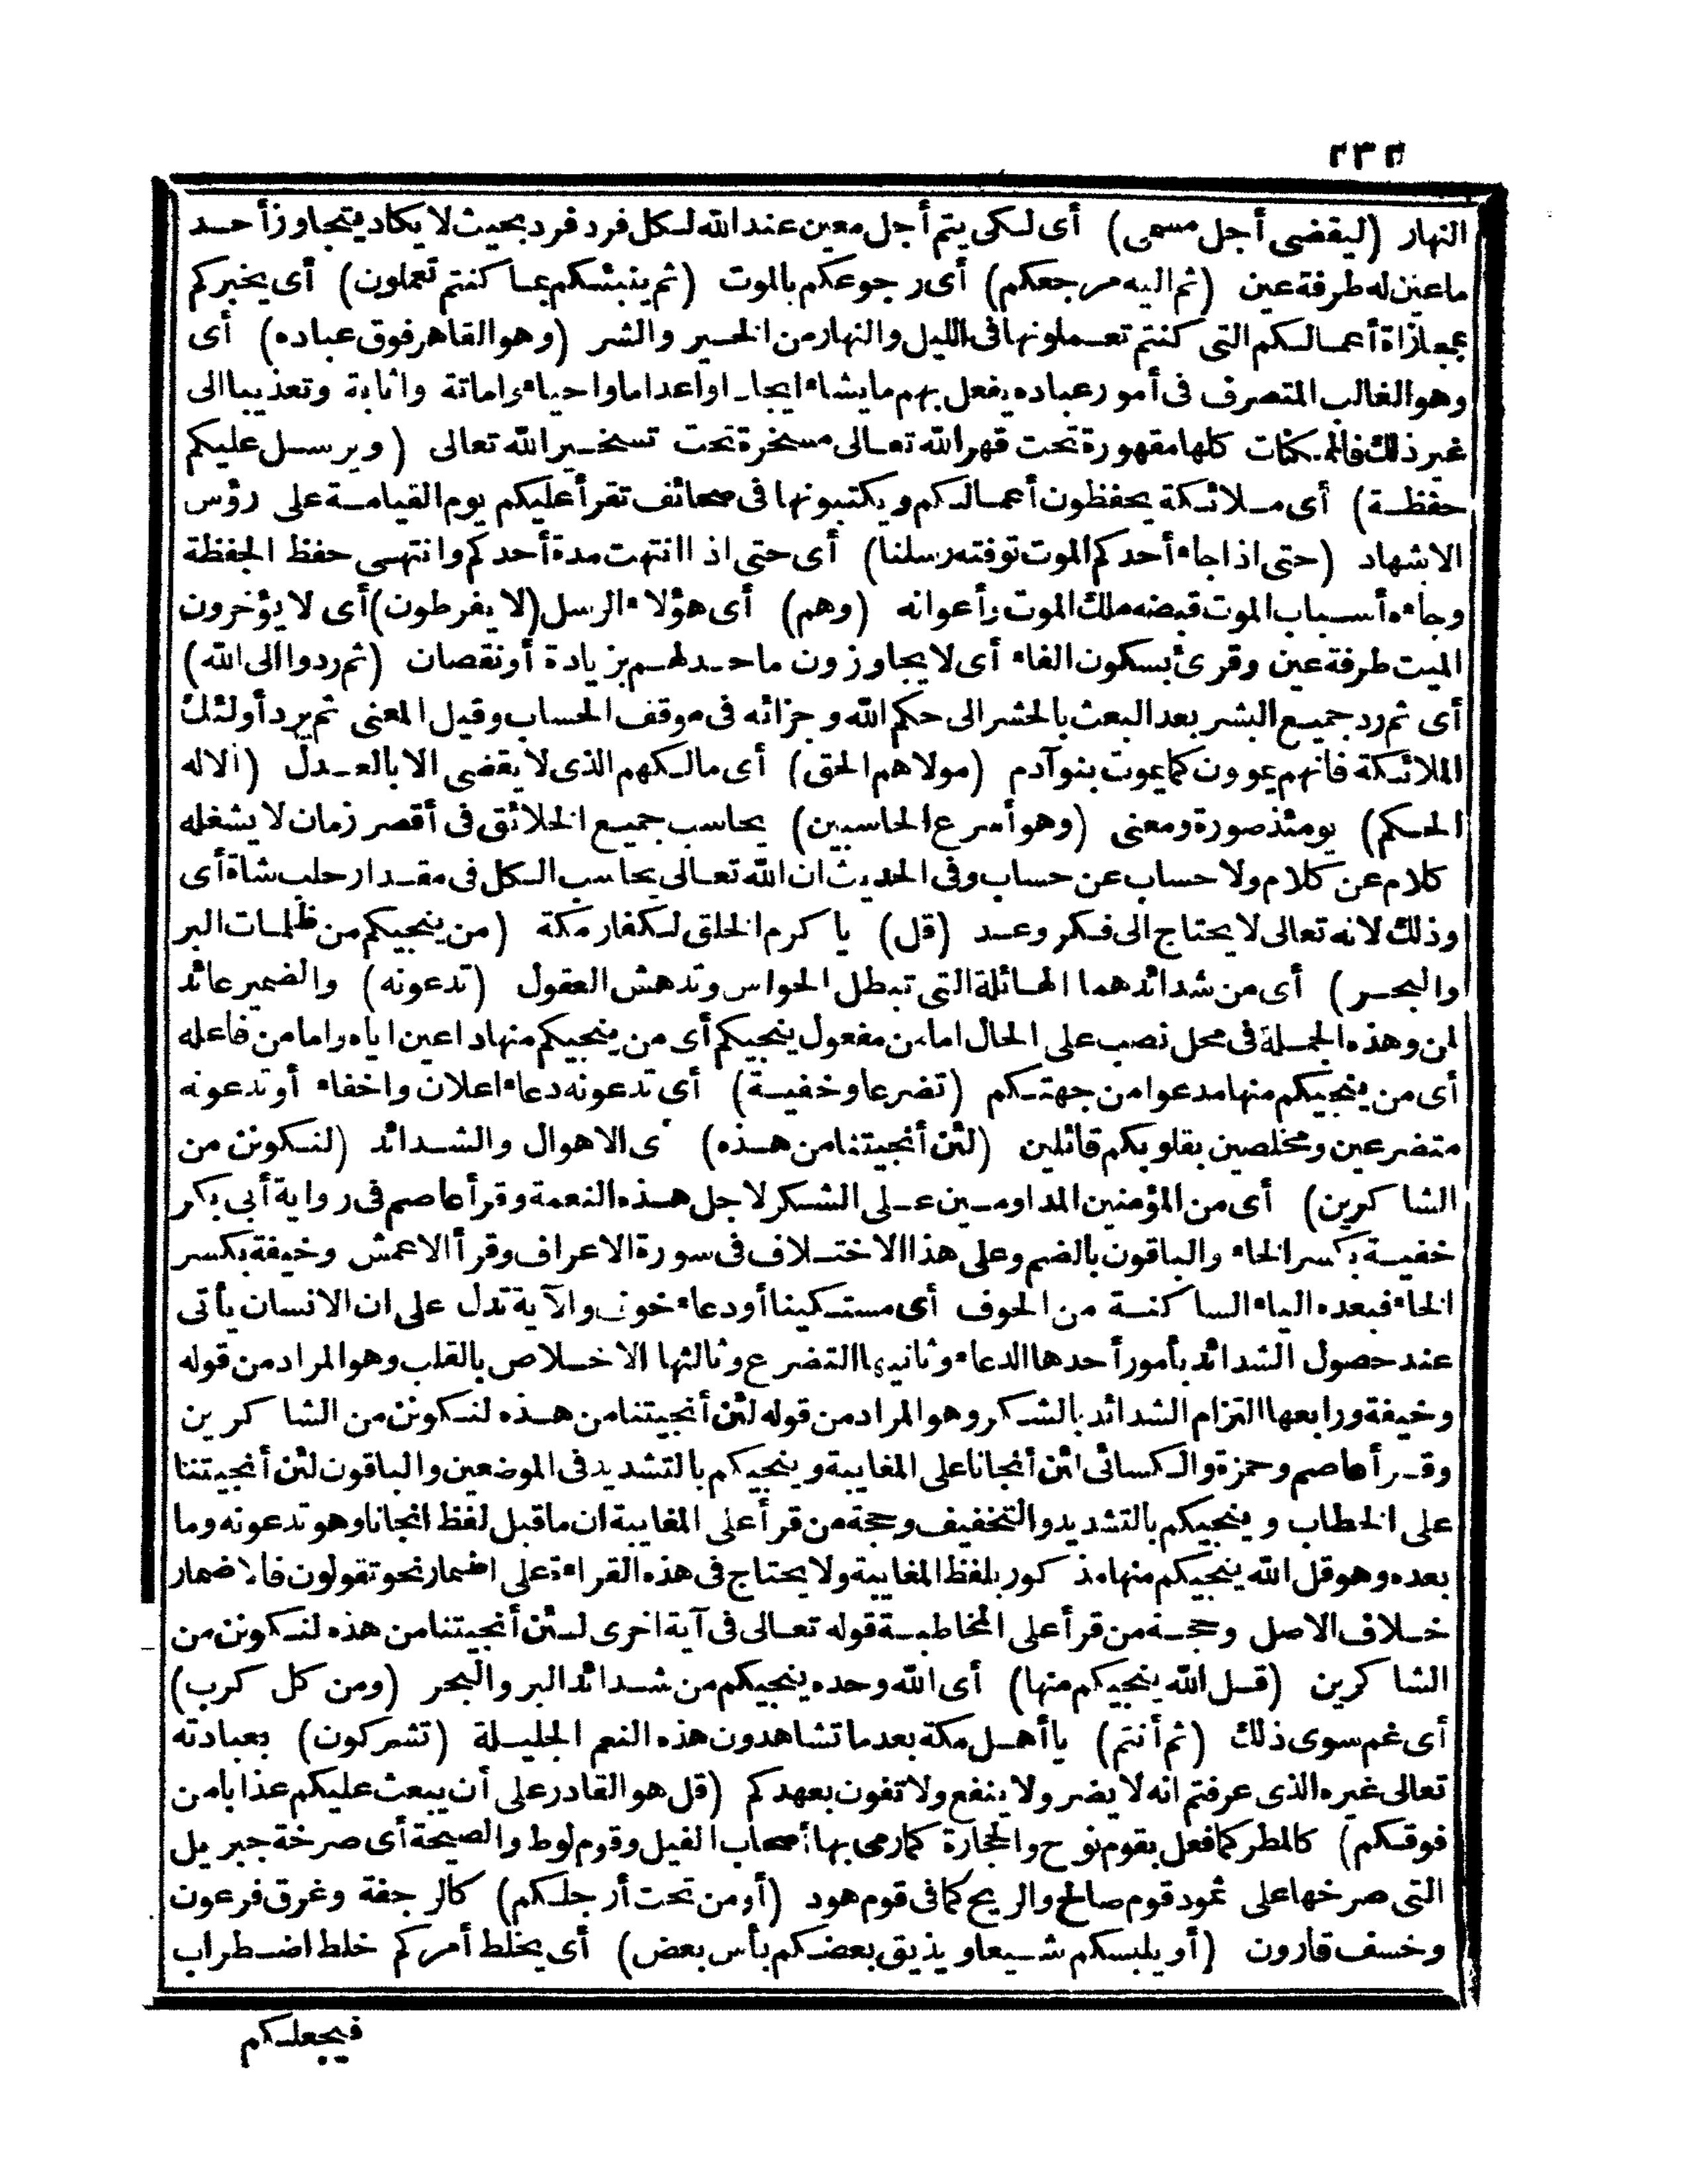 ٢٣٣
النهار (ليقضى أجل مسمى) أى لكى يتم أجل معين عند الله لكل فرد فرد بحيث لا يكاد يتجاوز أحد
ما عين له طرفة عين (ثم اليه مرجعكم) أى رجوعكم بالموت (ثم ينبئكم بما كنتم تعملون) أى يخبركم
بمجازاة أعمالكم التى كنتم تعملونها فى الليل والنهار من الخير والشر (وهو القاهر فوق عباده) أى
وهو الغالب المتصرف فى أمور عباده يفعل بهم ما يشاء ايجادا واعداما واحياء واماتة واثابة وتعذيبا الى
غير ذلك فالممكنات كلها مقهورة تحت قهر الله تعالى مسخرة تحت تسخير الله تعالى (ويرسل عليكم
حفظة) أى ملائكة يحفظون أعمالكم ويكتبونها فى صحائف تقرأ عليكم يوم القيامة على رؤس
الاشهاد (حتى اذا جاء أحدكم الموت توفته رسلنا) أى حتى اذا انتهت مدة أحدكم وانتهى حفظ الحفظة
وجاءه أسباب الموت قبضه ملك الموت وأعوانه (وهم) أى هؤلاء الرسل (لا يفرطون) أى لا يؤخرون
الميت طرفة عين وقرئ بسكون الفاء أى لا يجاوزون ما حد لهم بزيادة أو نقصان (ثم ردوا الى الله)
أى ثم رد جميع البشر بعد البعث بالحشر الى حكم الله وجزائه فى موقف الحساب وقيل المعنى ثم يرد أولئك
الملائكة فانهم يموتون كما يموت بنو آدم (مولاهم الحق) أى مالكهم الذى لا يقضى الا بالعدل (ألا له
الحكم) يومئذ صورة ومعنى (وهو أسرع الحاسبين) يحاسب جميع الخلائق فى أقصر زمان لا يشغله
كلام عن كلام ولا حساب عن حساب وفى الحديث ان الله تعالى يحاسب الكل فى مقدار حلب شاة أى
وذلك لانه تعالى لا يحتاج الى فكر وعد (قل) يا كرم الخلق لكفار مكة (من ينجيكم من ظلمات البر
والبحر) أى من شدائدهما الهائلة التى تبطل الحواس وتدهش العقول (تدعونه) والضمير عائد
لمن وهذه الجملة فى محل نصب على الحال اما من مفعول ينجيكم أى من ينجيكم منها داعين اياه واما من فاعله
أى من ينجيكم منها مدعوا من جهتكم (تضرعا وخفية) أى تدعونه دعاء اعلان واخفاء أو تدعونه
متضرعين ومخلصين بقلوبكم قائلين (لئن أنجيتنا من هذه) أى الاهوال والشدائد (لنكونن من
الشاكرين) أى من المؤمنين المداومين على الشكر لاجل هذه النعمة وقرأ عاصم فى رواية أبى بكر
خفية بكسر الخاء والباقون بالضم وعلى هذا الاختلاف فى سورة الاعراف وقرأ الاعمش وخيفة بكسر
الخاء فبعده الياء الساكنة من الخوف أى مستكينا أو دعاء خوف والآية تدل على ان الانسان يأتى
عند حصول الشدائد بأمور أحدها الدعاء وثانيها التضرع وثالثها الاخلاص بالقلب وهو المراد من قوله
وخيفة ورابعها التزام الشدائد بالشكر وهو المراد من قوله لئن أنجيتنا من هذه لنكونن من الشاكرين
وقرأ عاصم وحمزة والكسائى لئن أنجانا على المغايبة وينجيكم بالتشديد فى الموضعين والباقون لئن أنجيتنا
على الخطاب وينجيكم بالتشديد والتخفيف وحجة من قرأ على المغايبة ان ما قبل لفظ انجانا وهو تدعونه وما
بعده وهو قل الله ينجيكم منها مذكور بلفظ المغايبة ولا يحتاج فى هذه القراءة على اضمار نحو تقولون فالاضمار
خلاف الاصل وحجة من قرأ على المخاطبة قوله تعالى فى آية اخرى لئن أنجيتنا من هذه لنكونن من
الشاكرين (قل الله ينجيكم منها) أى الله وحده ينجيكم من شدائد البر والبحر (ومن كل كرب)
أى غم سوى ذلك (ثم أنتم) يا أهل مكة بعد ما تشاهدون هذه النعم الجليلة (تشركون) بعبادته
تعالى غيره الذى عرفتم انه لا يضر ولا ينفع ولا تفون بعهدكم (قل هو القادر على أن يبعث عليكم عذابا من
فوقكم) كالمطر كما فعل بقوم نوح والحجارة كما رمى بها أصحاب الفيل وقوم لوط والصيحة أى صرخة جبريل
التى صرخها على ثمود قوم صالح والريح كما فى قوم هود (أو من تحت أرجلكم) كالرجفة وغرق فرعون
وخسف قارون (أو يلبسكم شيعا ويذيق بعضكم بأس بعض) أى يخلط أمركم خلط اضطراب
فيجعلكم